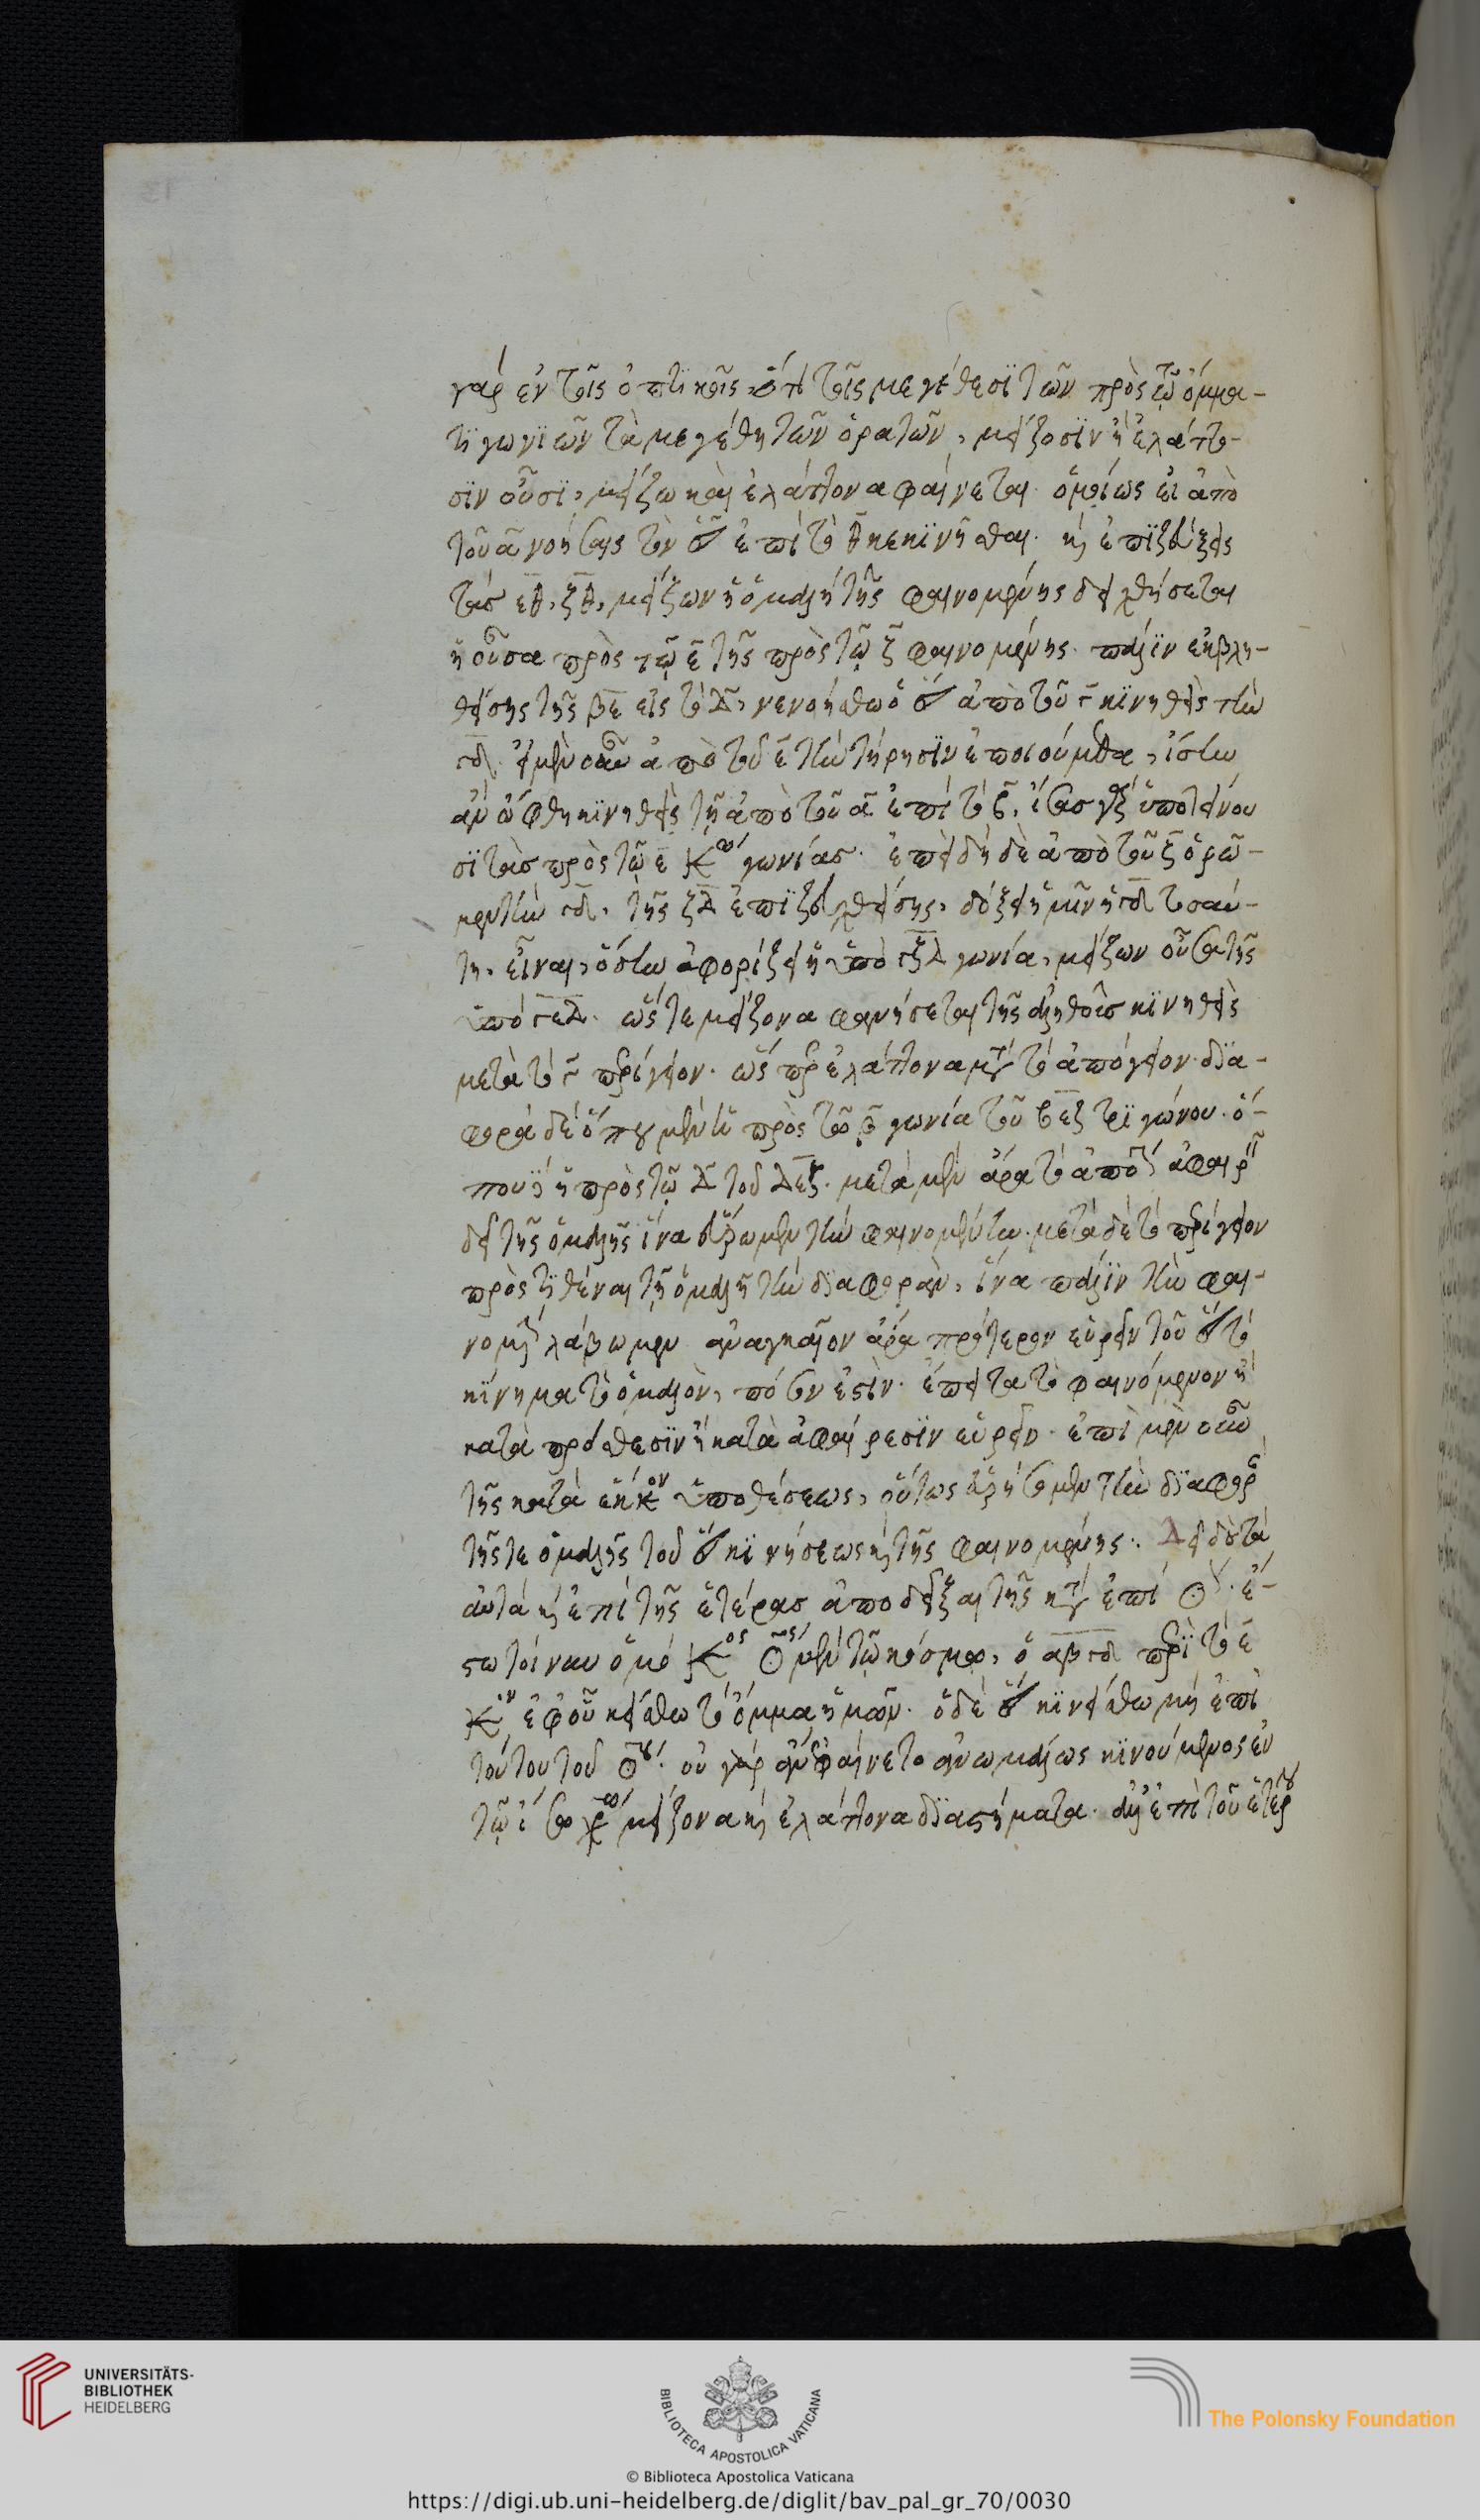 γὰρ ἐν τοῖς ὀπτικοῖς, ὅτι τοῖς μεγέθεσι τῶν πρὸς τῷ ὄμμα-
τι γωνιῶν τὰ μεγέθη τῶν ὁρατῶν, μείζοσιν ἢ ἐλάττο-
σιν οὖσι, μείζω καὶ ἐλάττονα φαίνεται. ὁμοίως εἰ ἀπὸ
τοῦ α νοήσαις τὸν ☉ ἐπὶ τὸ θ κεκινῆσθαι. καὶ ἐπιζεύξεις
τὰς εθ, ζθ, μείζων ἡ ὁμαλὴ τῆς φαινομένης δειχθήσεται
ἡ οὖσα πρὸς τῷ ε τῆς πρὸς τῷ ζ φαινομένης. πάλιν ἐκβλη-
θείσης τῆς βε εἰς τὸ λ, νενοήσθω ὁ ☉ ἀπὸ τοῦ γ κινηθεὶς τὴν
γδ. εἰ μὲν οὖν ἀπὸ τοῦ ε τὴν τήρησιν ἐποιούμεθα, ἴστω
ἂν ὤφθη κινηθεὶς τῇ ἀπὸ τοῦ α ἐπὶ τὸ β, ἴσας γὰρ ὑποτείνου
σι τὰς πρὸς τῷ ε κέντρῳ γωνίας. ἐπειδὴ δὲ ἀπὸ τοῦ ζ ὁρῶ-
μεν τὴν γδ, τῆς ζλ ἐπιζευχθείσης, δόξει ἡμῖν ἡ γδ τοσαύ-
τη εἶναι, ὅστω ἀφορίζει ἡ ὑπὸ γζλ γωνία, μείζων οὖσα τῆς
ὑπὸ γελ. ὥστε μείζονα φανήσεται τῆς ἀληθοῦς κινηθεὶς
μετὰ τὸ γ περίγειον. ὥσπερ ἐλάττονα μετὰ τὸ ἀπόγειον. δια-
φορὰ δὲ ὅπου μὲν ἡ πρὸς τῷ β γωνία τοῦ βεζ τριγώνου. ὅ-
που δὲ ἡ πρὸς τῷ λ τοῦ λεζ. μετὰ μὲν ἄρα τὸ ἀπόγ ἀφαιρ
δεῖ τῆς ὁμαλῆς ἵνα εὕρωμεν τὴν φαινομένην. μετὰ δὲ τὸ περίγειον
προστιθέναι τῇ ὁμαλῇ τὴν διαφορὰν, ἵνα πάλιν τὴν φαι-
νομέν λάβωμεν. ἀναγκαῖον ἄρα πρότερον εὑρεῖν τοῦ ☉ τὸ
κίνημα τὸ ὁμαλὸν, πόσον ἐστὶν. ἔπειτα τὸ φαινόμενον ἢ
κατὰ πρόσθεσιν ἢ κατὰ ἀφαίρεσιν εὑρεῖν. ἐπὶ μὲν οὖν
τῆς κατὰ ἔκκεντρον ὑποθέσεως, οὕτως εὑρήσομεν τὴν διαφορ
τῆς τε ὁμαλῆς τοῦ ☉ κινήσεως καὶ τῆς φαινομένης. Δεῖ δὲ τὰ
αὐτὰ καὶ ἐπὶ τῆς ἑτέρας ἀποδεῖξαι τῆς κατ ἐπί ☉. ἔ-
στω τοίνυν ὁμόκεντρος ☉ς μὲν τῷ κόσμῳ, ὁ αβγδ περὶ τὸ ε
κέντρον ἐφ οὗ κείσθω τὸ ὄμμα ἡμῶν. ὁ δὲ ☉ κινείσθω μὴ ἐπὶ
τούτου τοῦ ☉. οὐ γὰρ ἂν ἐφαίνετο ἀνωμάλως κινούμενος ἐν
τῷ ἴσῳ χρόνῳ μείζονα καὶ ἐλάττονα διαστήματα. ἀλλ ἐπὶ τοῦ ἑτέρ
UNIVERSITÄTS-
BIBLIOTHEK
HEIDELBERG
BIBLIOTECA APOSTOLICA VATICANA
The Polonsky Foundation
© Biblioteca Apostolica Vaticana
https://digi.ub.uni-heidelberg.de/diglit/bav_pal_gr_70/0030